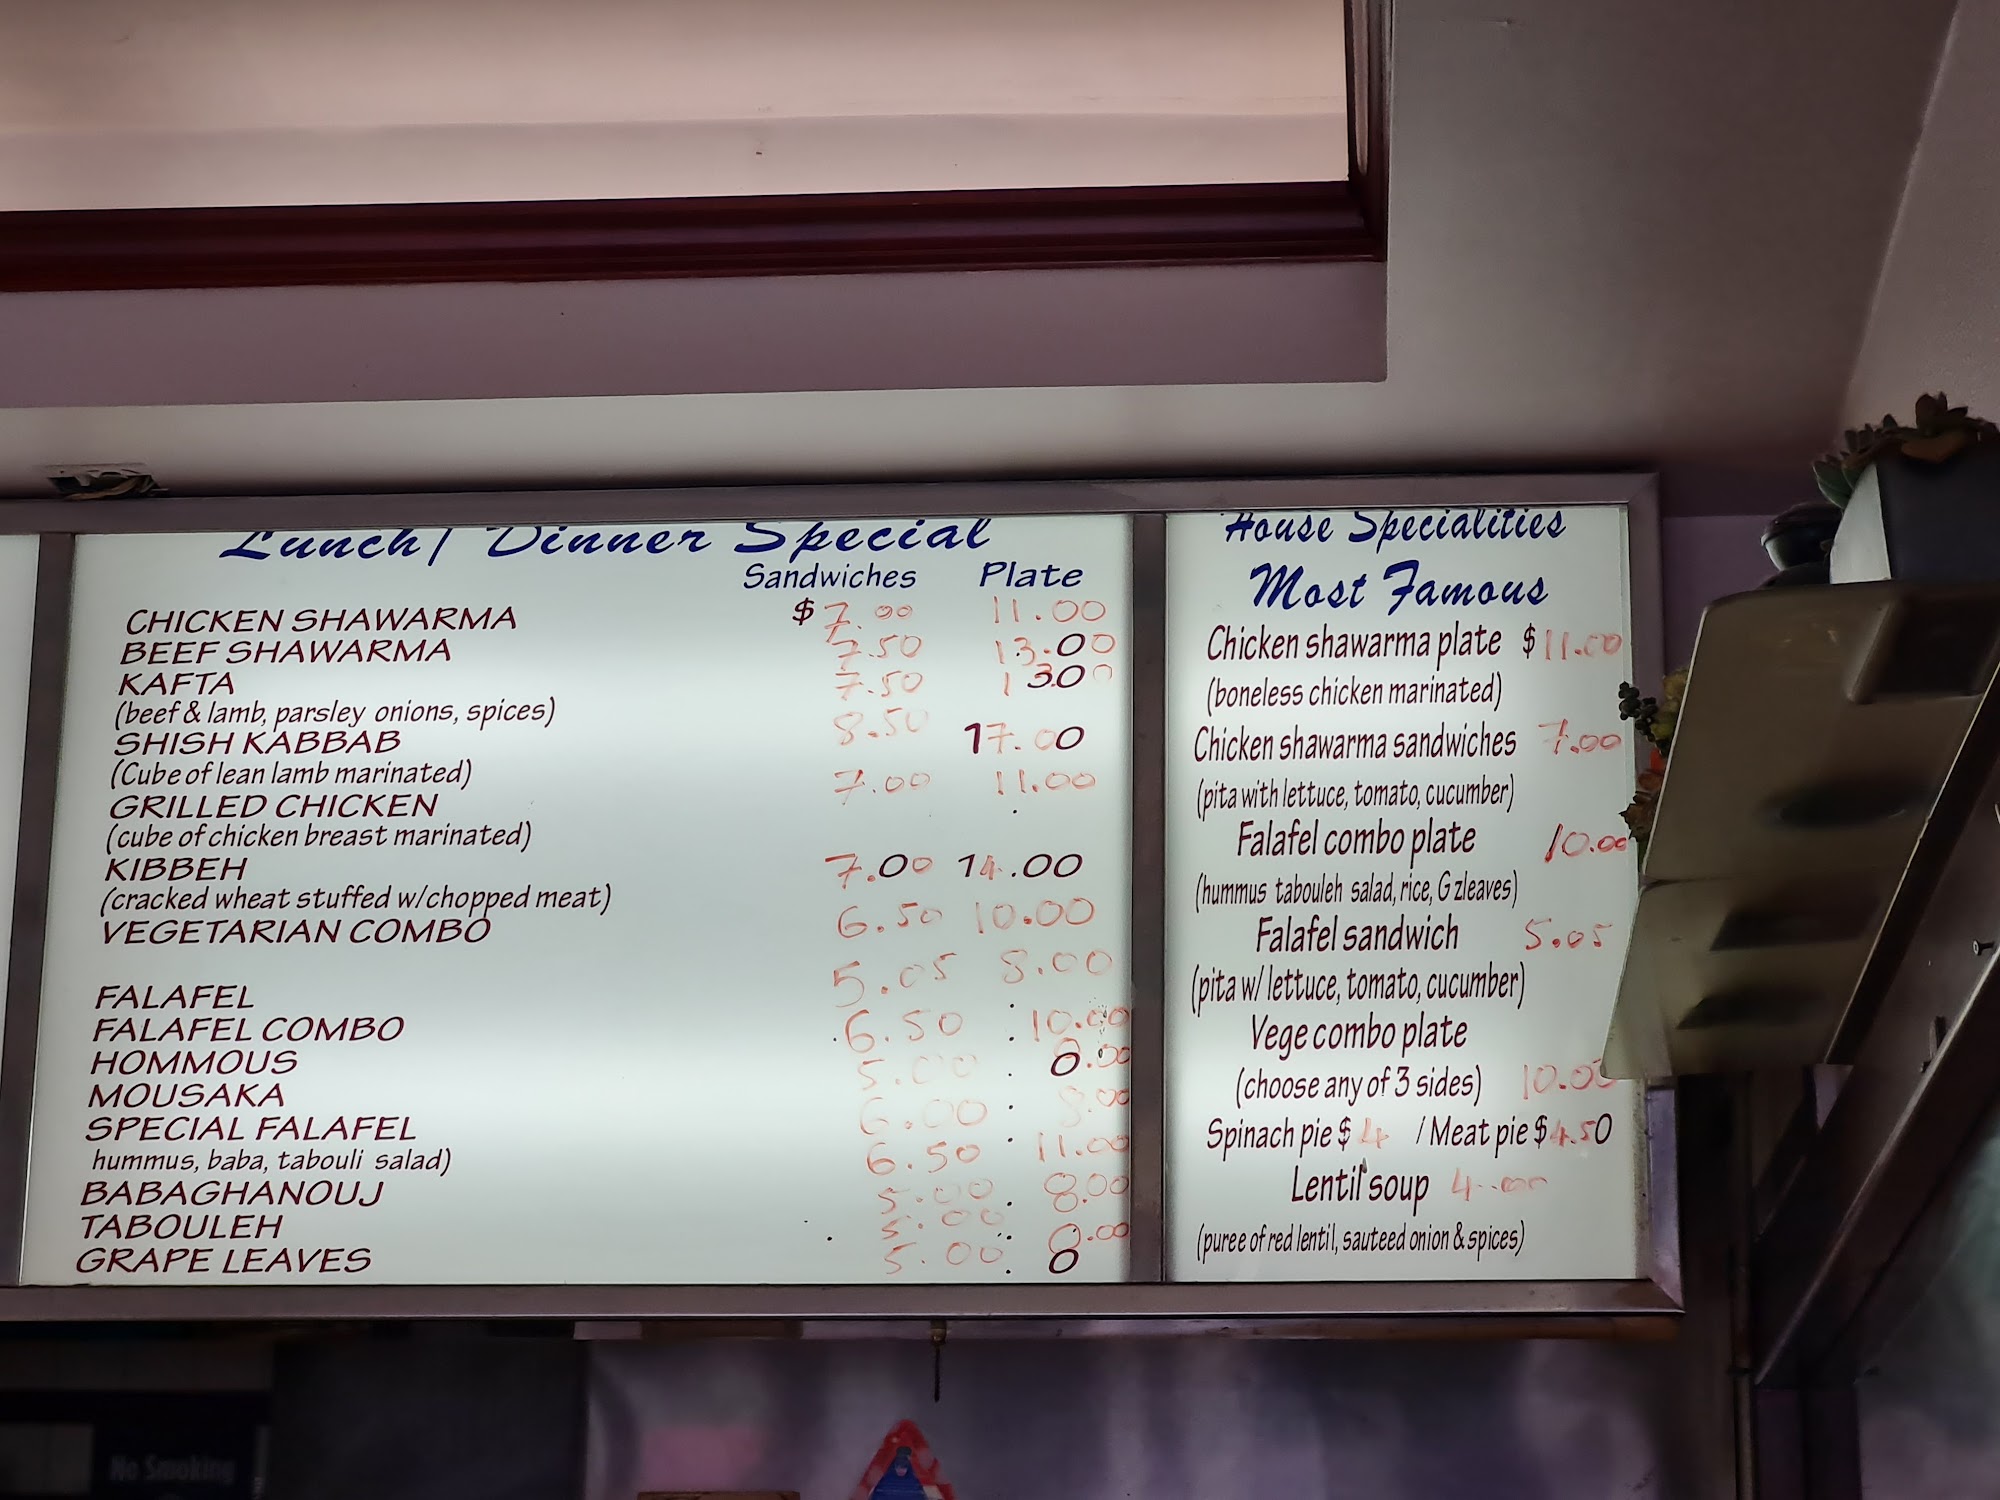 Lunch/ Dinner Special
Sandwiches Plate
CHICKEN SHAWARMA $7.00 11.00
BEEF SHAWARMA 7.50 13.00
KAFTA 7.50 13.00
(beef & lamb, parsley onions, spices)
SHISH KABBAB 8.50 17.00
(Cube of lean lamb marinated)
GRILLED CHICKEN 7.00 11.00
(cube of chicken breast marinated)
KIBBEH 7.00 14.00
(cracked wheat stuffed w/chopped meat)
VEGETARIAN COMBO 6.50 10.00
FALAFEL 5.05 8.00
FALAFEL COMBO 6.50 10.00
HOMMOUS 5.00 8.00
MOUSAKA 6.00 8.00
SPECIAL FALAFEL 6.50 11.00
hummus, baba, tabouli salad)
BABAGHANOUJ 5.00 8.00
TABOULEH 5.00 8.00
GRAPE LEAVES 5.00 8
House Specialities
Most Famous
Chicken shawarma plate $11.00
(boneless chicken marinated)
Chicken shawarma sandwiches 7.00
(pita with lettuce, tomato, cucumber)
Falafel combo plate 10.00
(hummus tabouleh salad, rice, G zleaves)
Falafel sandwich 5.05
(pita w/ lettuce, tomato, cucumber)
Vege combo plate
(choose any of 3 sides) 10.00
Spinach pie $4 / Meat pie $4.50
Lentil soup 4.00
(puree of red lentil, sauteed onion & spices)
No Smoking